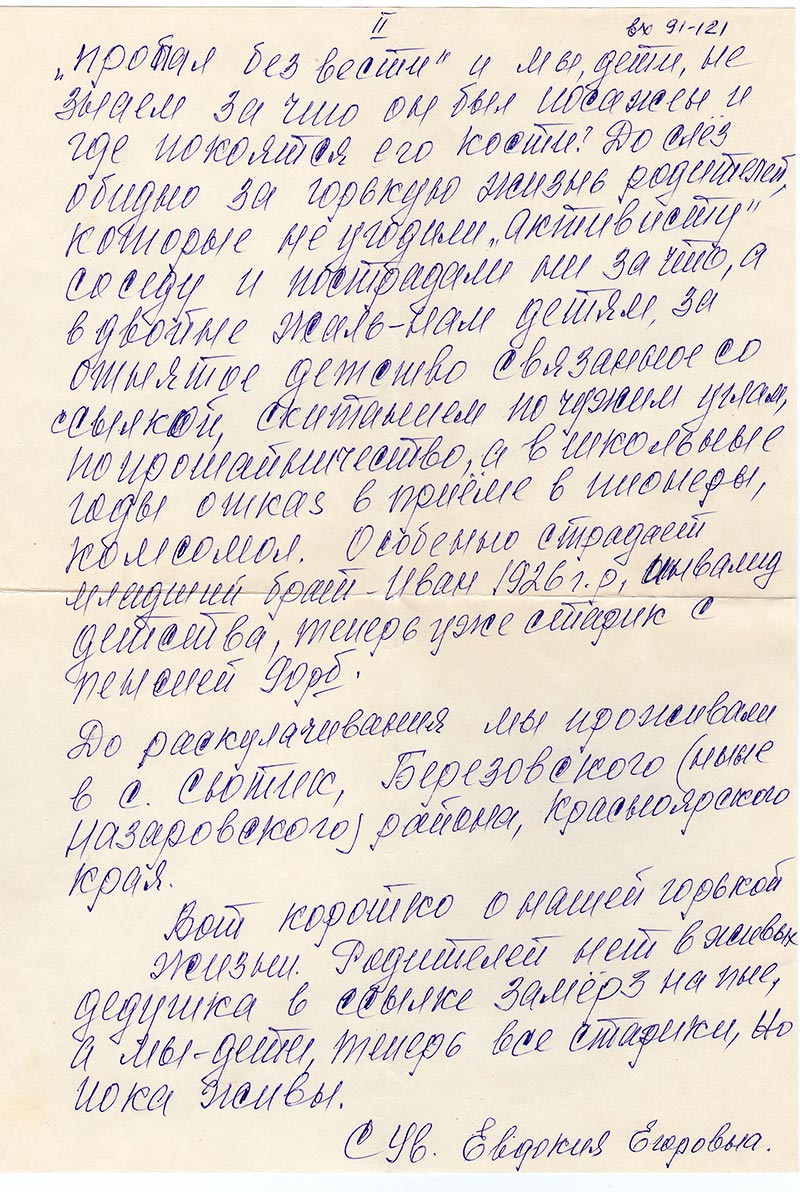 II
вх 91-121
„пропал без вести" и мы, дети, не
знаем за что он был посажен и
где покоятся его кости? До слёз
обидно за горькую жизнь родителей,
которые не угодили „активисту"
соседу и пострадали ни за что, а
в двойне жаль-нам детям, за
отнятое детство связанное со
ссылкой, скитанием по чужим углам,
попрошайничество, а в школьные
годы отказ в приёме в пионеры,
комсомол. Особенно страдает
младший брат-Иван 1926 г.р, инвалид
детства, теперь уже старик с
пенсией 90рб.
До раскулачивания мы проживали
в с. Сютик, Березовского (ныне
Назаровского) района, Красноярского
края.
Вот коротко о нашей горькой
жизни. Родителей нет в живых
дедушка в ссылке замёрз на пне,
а мы-дети, теперь все старики, но
пока живы.
С Ув. Евдокия Егоровна.